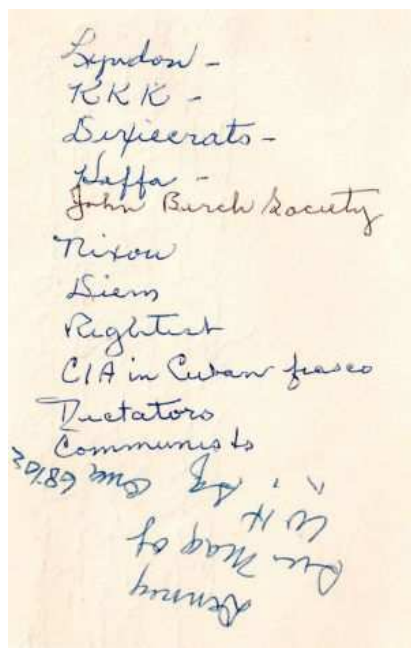 Lyndon -
KKK -
Dixiecrats -
Hoffa -
John Birch Society
Nixon
Diem
Rightist
CIA in Cuban fiasco
Dictators
Communists
Mag of